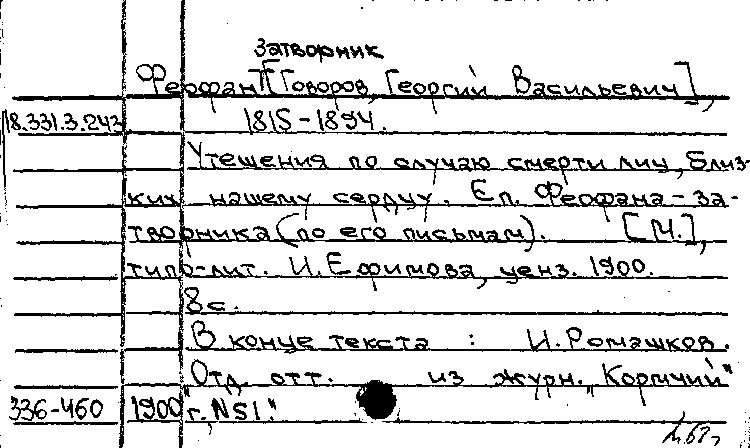 затворник
Феофан [Говоров, Георгий Васильевич],
18.331.3.243 1815-1894.
Утешения по случаю смерти лиц, близ-
ких нашему сердцу. Еп. Феофана-за-
творника (по его письмам). [М.],
типо-лит. И. Ефимова, ценз. 1900.
8с.
В конце текста : И. Ромашков.
Отд. отт. из журн. „Кормчий"
336-460 1900 г., №51."